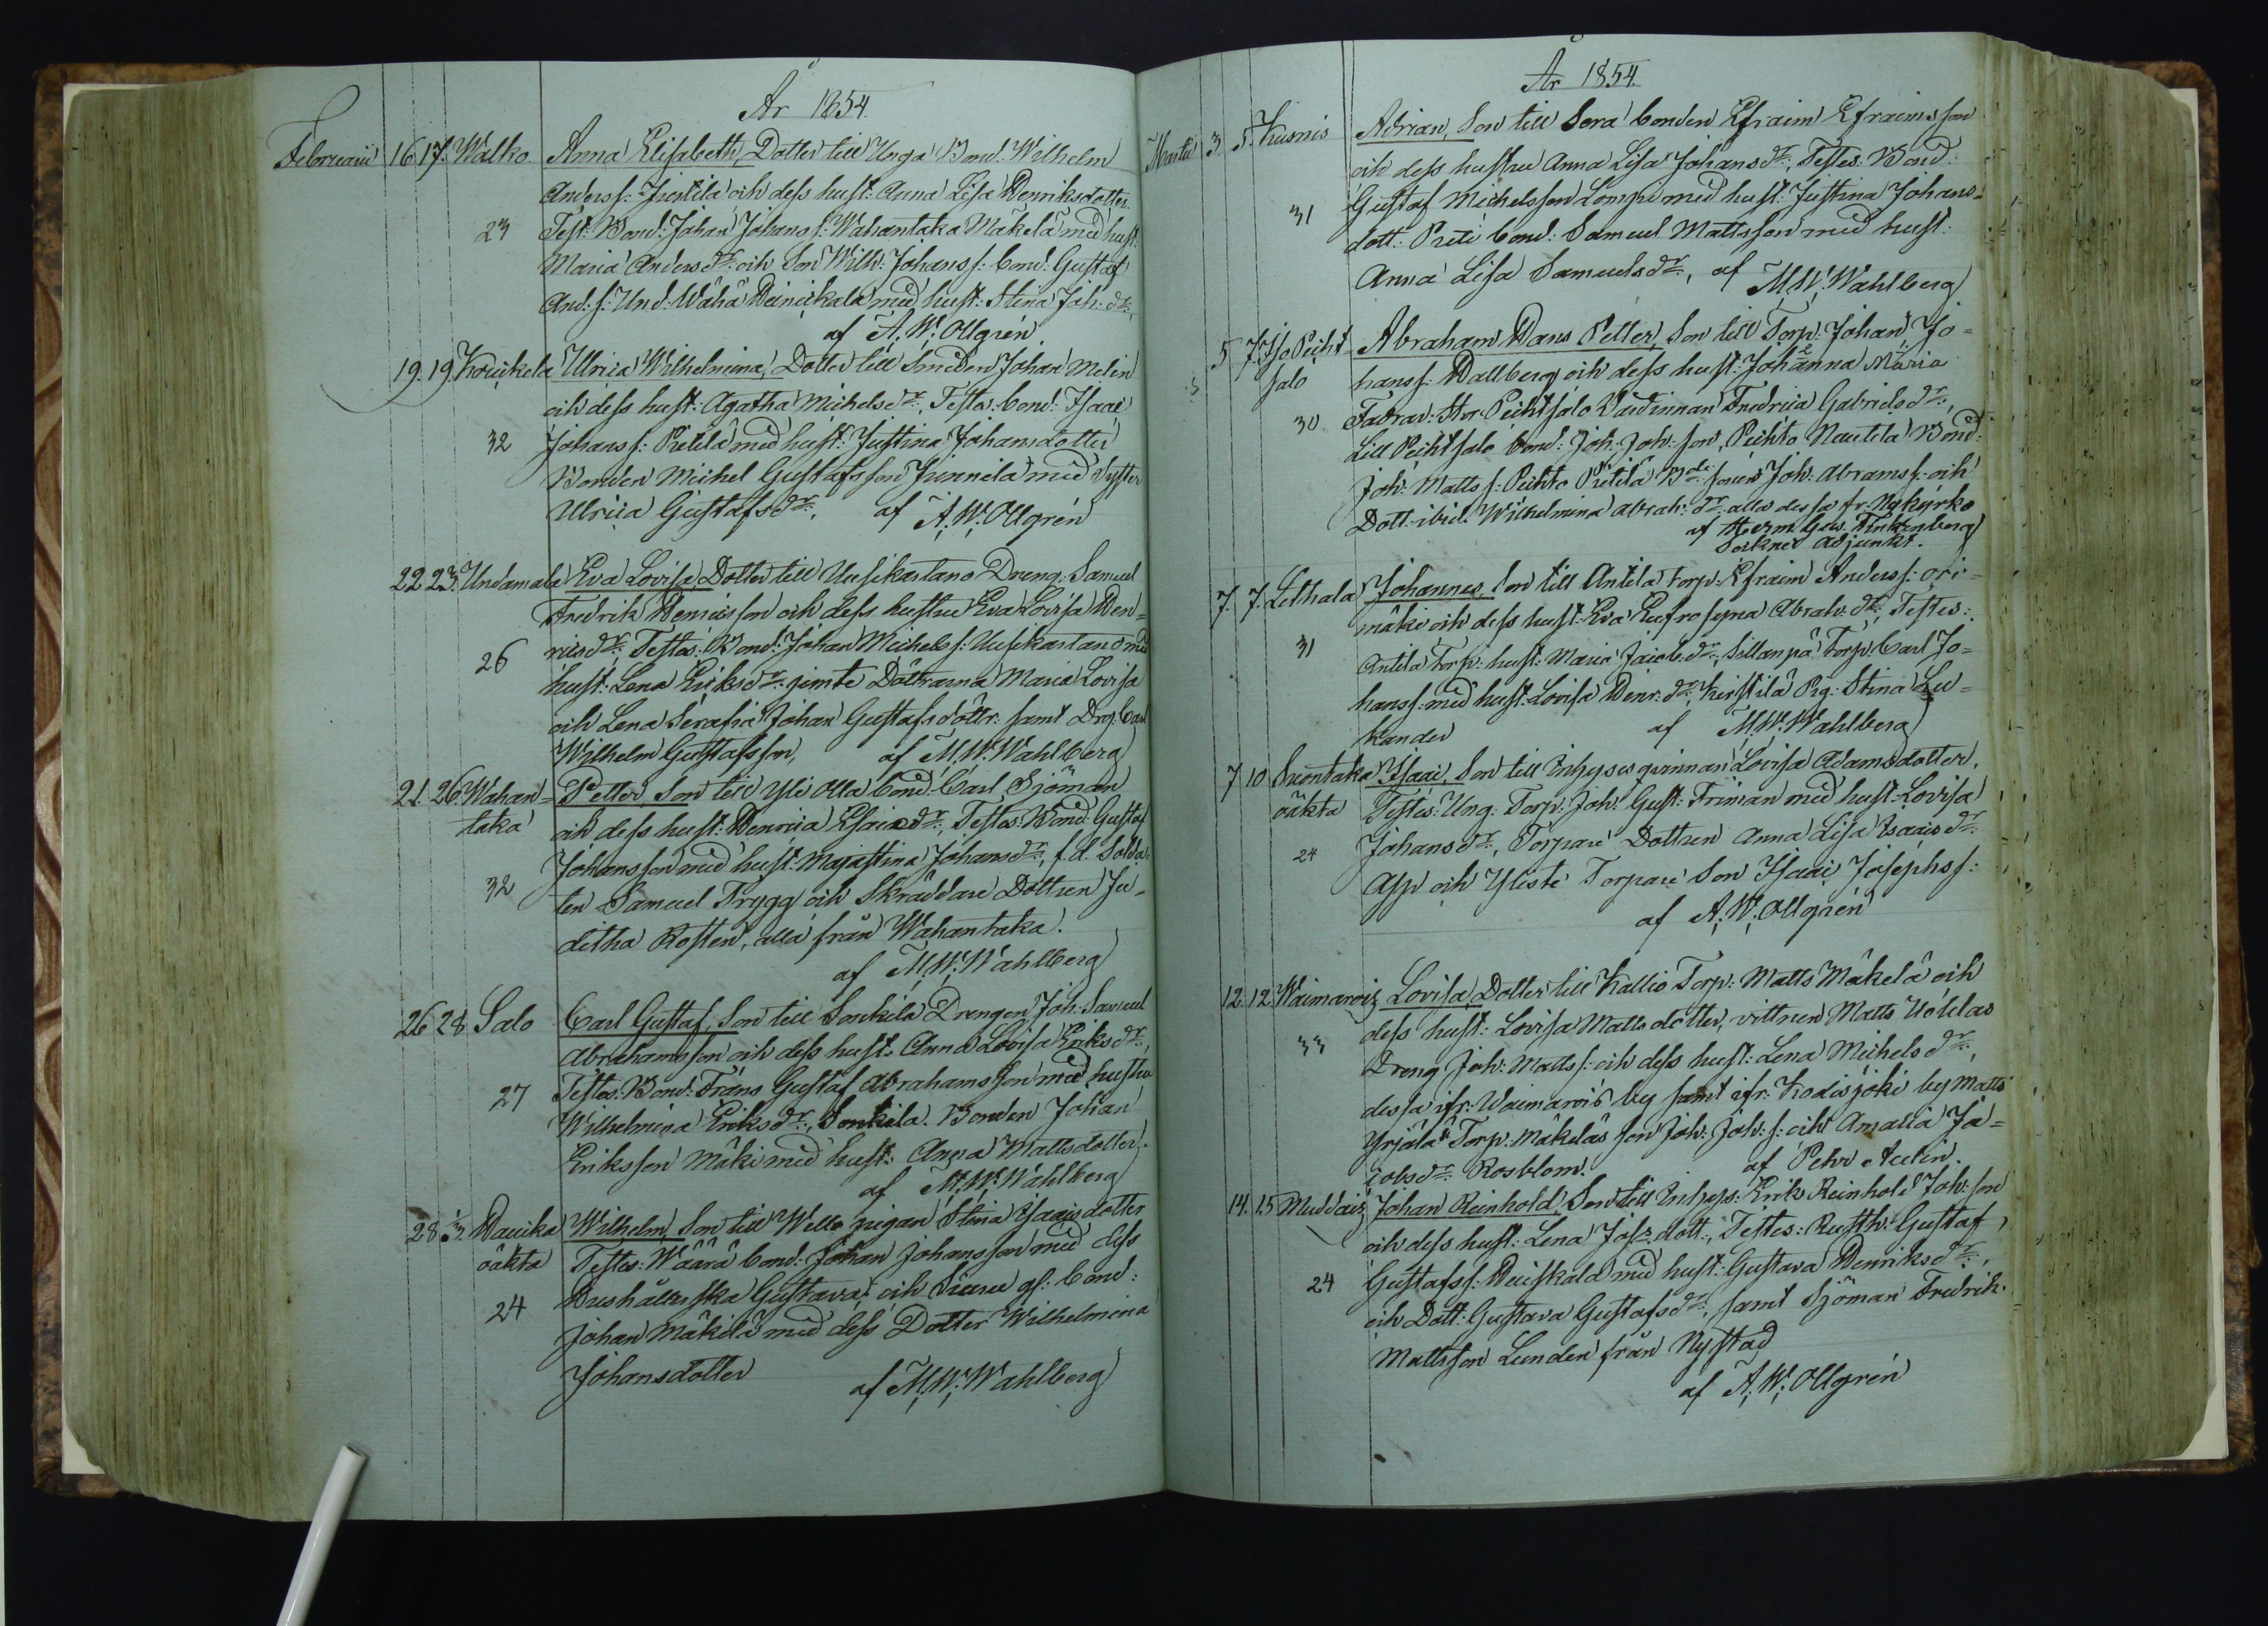 År 1854.
Februarii 16 17. Walko Anna Elisabeth, Dotter till Unga Bond. Wilhelm
Anders s. Juntila och dess hust: Anna Lisa Henriksdotter.
23 Test: Bond: Johan Johans s: Wahantaka Mäkelä med hust:
Maria Anders dr: och Son Wilh: Johans s: bond: Gustaf
And. s: Und: Wähä Heinikkala med hust: Stina Joh. dr:,
af A. W. Ollgrén.
19. 19. Kouckela Ulrica Wilhelmina, Dotter till Smeden Johan Melin
och dess hust: Agatha Michels dr:, Testes: bond: Isaac
32 Johans s: Pietilä med hust: Justina Johansdotter
Bonden Michel Gustafsson Junnila med Syster
Ulrica Gustafs dr:, af A. W. Ollgrén
22 23. Undamala Eva Lovisa, Dotter till Uusikartano Dreng. Samuel
Fredrik Henricsson och dess hustru Eva Lovisa Hen-
rics dr:, Testes: Bond: Johan Michels s: Uusikartano med
26
hust: Lena Eriks dr: jemte Döttrarna Maria Lovisa
och Lena Serafia Johan Gustafs döttr: samt Drg. Carl
Wilhelm Gustafsson, af M. W. Wahlberg
21. 26. Wahan- Petter, Son till Yli Olla bond. Carl Sjöman
taka och dess hust: Henrica Esaias dr:, Testes: Bond: Gustaf
Johansson med hust. Majastina Johans dr:, f. d. Solda-
32 ten Samuel Trygg och Skräddare Dottren Ju-
ditha Rosten, alla från Wahantaka.
af M. W. Wahlberg
26 28 Salo Carl Gustaf, Son till Sonkila Drengen Joh: Samuel
Abrahamsson och dess hust: Anna Lovisa Eriks dr:,
27 Testes: Bond: Frans Gustaf Abrahamsson med hustru
Wilhelmina Eriks dr:, Sonkila. Bonden Johan
Eriksson Mäki med hust: Anna Mattsdotter.
af M. W. Wahlberg
28 1/3. Hauika Wilhelm, Son till Wello pigan Stina Isaacsdotter
oäkta Testes: Wäärä bond: Johan Johansson med dess
24 Hushållerska Gustava, och bond:
Johan Mäkilä med dess Dotter Wilhelmina
Johansdotter af M. W. Wahlberg
År 1854.
Martii 3. 5. Kusnis Adrian, Son till Sera bonden Efraim Efraimsson
och dess hustru Anna Lisa Johans dr:, Testes: Bond:
31 Gustaf Michelsson Lompi med hust: Justina Johans-
dott: Preti bond: Samuel Mattsson med hust:
Anna Lisa Samuels dr:, af M. W. Wahlberg
5 7. Iso Peiht Abraham Hans Petter, Son till Torp: Johan Jo-
salo hans s: Hallberg och dess hust: Johanna Maria
30 Fadrar: Stor Peihtsalo Värdinnan Fredrica Gabriels dr:,
Lill Peihtsalo bond: Joh: Joh: son, Peihto Nautila Bond:
Joh: Matts s: Peihto Pietilä Bde sonen Joh: Abrams s: och
Dott. ibid. Wilhelmina Abrah: dr: alla dessa fr. Nykyrko
af Herm Gust. Finkenberg
Sockne Adjunkt.
7. 7. Lethala Johannes, Son till Antila torp: Efraim Anders s: Ori-
mäki och dess hust: Eva Eufrosyna Abrah. dr:, Testes:
31 Antila Torp: hust: Maria Jacob. dr:, Sillanpä Torp: Carl Jo-
hans s: med hust: Lovisa Henr. dr:, Kirstilä Pig: Stina Lu-
kander af M. W. Wahlberg
7 10 Suontaka Isaac, Son till Inhyses qvinnan Lovisa Adamsdotter,
oäkta Testes: Ung: Torp: Joh: Gust: Friman med hust: Lovisa
24 Johans dr:, Torpare Dottren Anna Lisa Isaacs dr:
Asp och Yliste Torpare Son Isaac Josephs s:
af A. W. Ollgrén
12. 12 Waimarois Lovisa, Dotter till Kallio Torp: Matts Mäkelä och
33 dess hust: Lovisa Mattsdotter, vittnen Matts Uotilas
Dreng Joh: Matts s: och dess hust: Lena Michels dr:,
dessa ifr: Waimarois by samt ifr: Kodisjoki by Matts
Yrjälä Torp: Mäkeläs son Joh: Joh: s: och Amalia Ja-
cobs dr: Rosblom. af Pehr Aulin.
14. 15 Muddais Johan Reinhold, Son till Inhys: Erik Reinhold Joh: son
och dess hust: Lena Jos: dott:, Testes: Rusth: Gustaf
24 Gustafs s: Heiskala med hust: Gustava Henriks dr:,
och Dott: Gustava Gustafs dr:, samt Sjöman Fredrik
Mattsson Lunden från Nystad
af A. W. Ollgrén